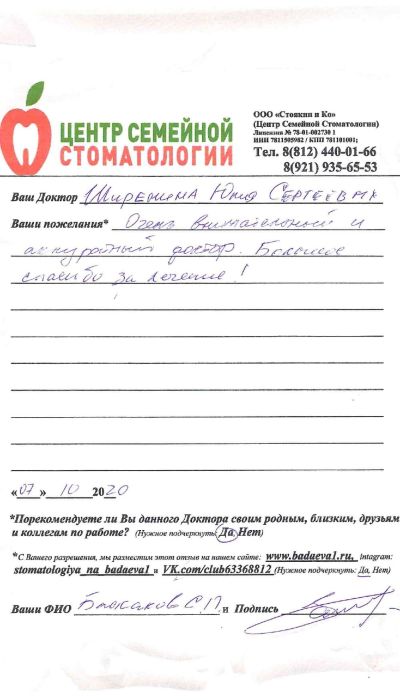 ЦЕНТР СЕМЕЙНОЙ
СТОМАТОЛОГИИ
ООО «Стоякин и Ко»
(Центр Семейной Стоматологии)
Лицензия № 78-01-002730 1
ИНН 7811505982 / КПП 781101001;
Тел. 8(812) 440-01-66
8(921) 935-65-53
Ваш Доктор Ширенина Юлия Сергеевна
Ваши пожелания* Очень внимательный и
аккуратный доктор. Большое
спасибо за лечение!
«07» 10 2020
*Порекомендуете ли Вы данного Доктора своим родным, близким, друзьям
и коллегам по работе? (Нужное подчеркнуть: Да, Нет)
*С Вашего разрешения, мы разместим этот отзыв на нашем сайте: www.badaeva1.ru, intagram:
stomatologiya_na_badaeva1 и VK.com/club63368812 (Нужное подчеркнуть: Да, Нет)
Ваши ФИО С.П. и Подпись